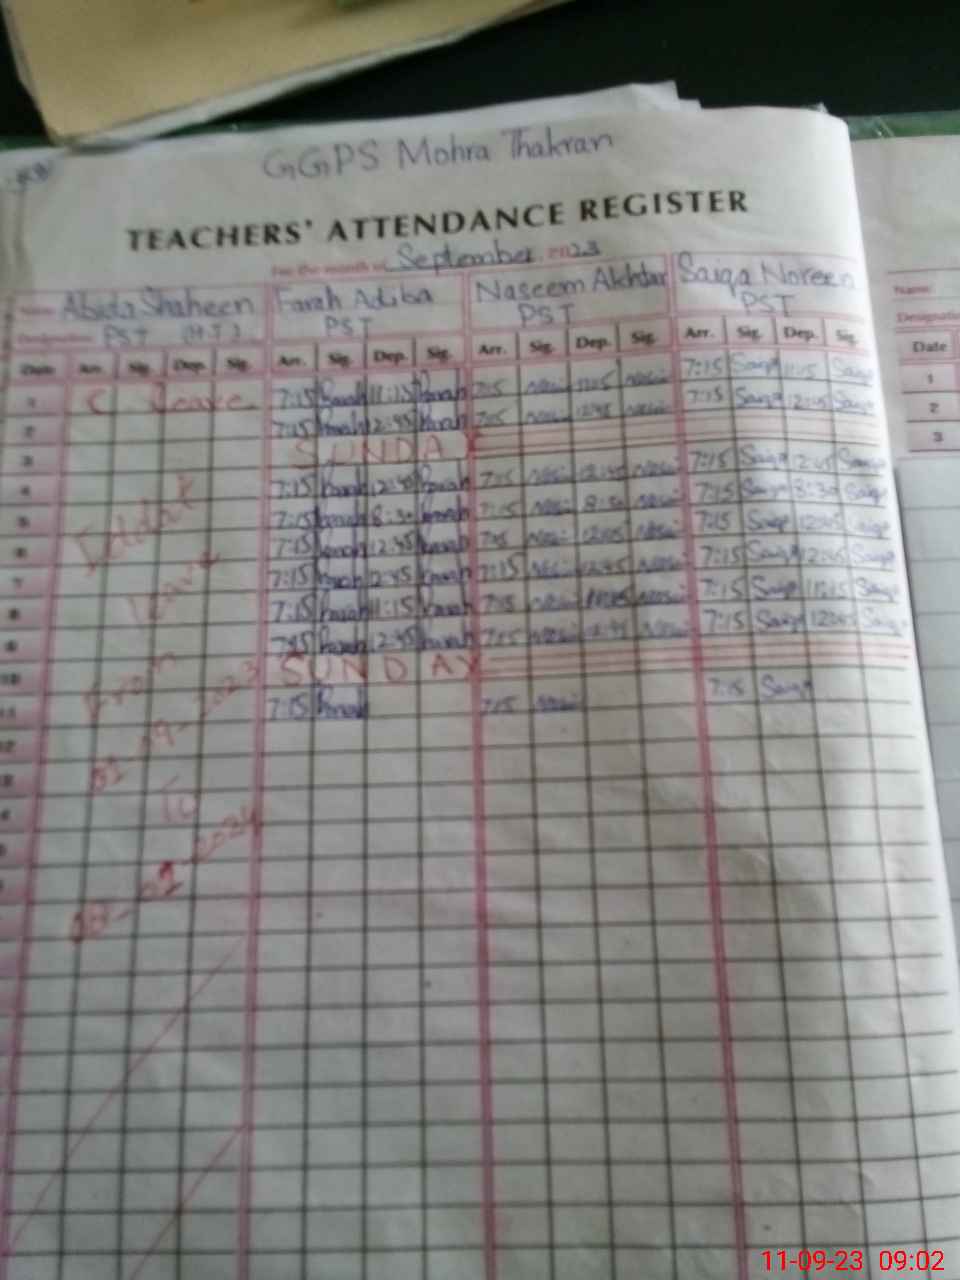 GGPS Mohra Thakran
TEACHERS' ATTENDANCE REGISTER
For the month of September 2023
Name Abida Shaheen Farah Adiba Naseem Akhtar Saiqa Noreen Name
Designation PST (H.T) PST PST PST Designatio
Date Arr. Sig. Dep. Sig. Arr. Sig. Dep. Sig. Arr. Sig. Dep. Sig. Arr. Sig. Dep. Sig. Date
1 C Leave 7:15 Farah 11:15 Farah 7:15 7:15 Saiqa 11:15 Saiqa 1
2 7:15 Farah 12:45 Farah 7:15 12:45 7:15 Saiqa 12:45 Saiqa 2
3 SUNDAY 3
4 7:15 Farah 12:45 Farah 7:15 12:45 7:15 Saiqa 12:45 Saiqa
5 7:15 Farah 8:30 Farah 7:15 8:30 7:15 Saiqa 8:30 Saiqa
6 7:15 Farah 12:45 Farah 7:15 12:45 7:15 Saiqa 12:45 Saiqa
7 7:15 Farah 12:45 Farah 7:15 12:45 7:15 Saiqa 12:45 Saiqa
8 7:15 Farah 11:15 Farah 7:15 11:15 7:15 Saiqa 11:15 Saiqa
9 7:15 Farah 12:45 Farah 7:15 12:45 7:15 Saiqa 12:45 Saiqa
10 SUNDAY
11 7:15 Farah 7:15 7:15 Saiqa
12
13
14
Iddat
leave
From
01-09-2023
To
11-09-23 09:02